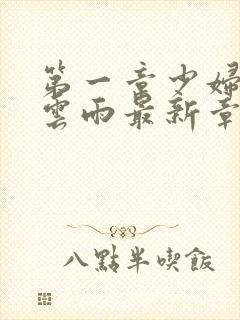 第一章少婦
雲雨最新章
八點半喫飯